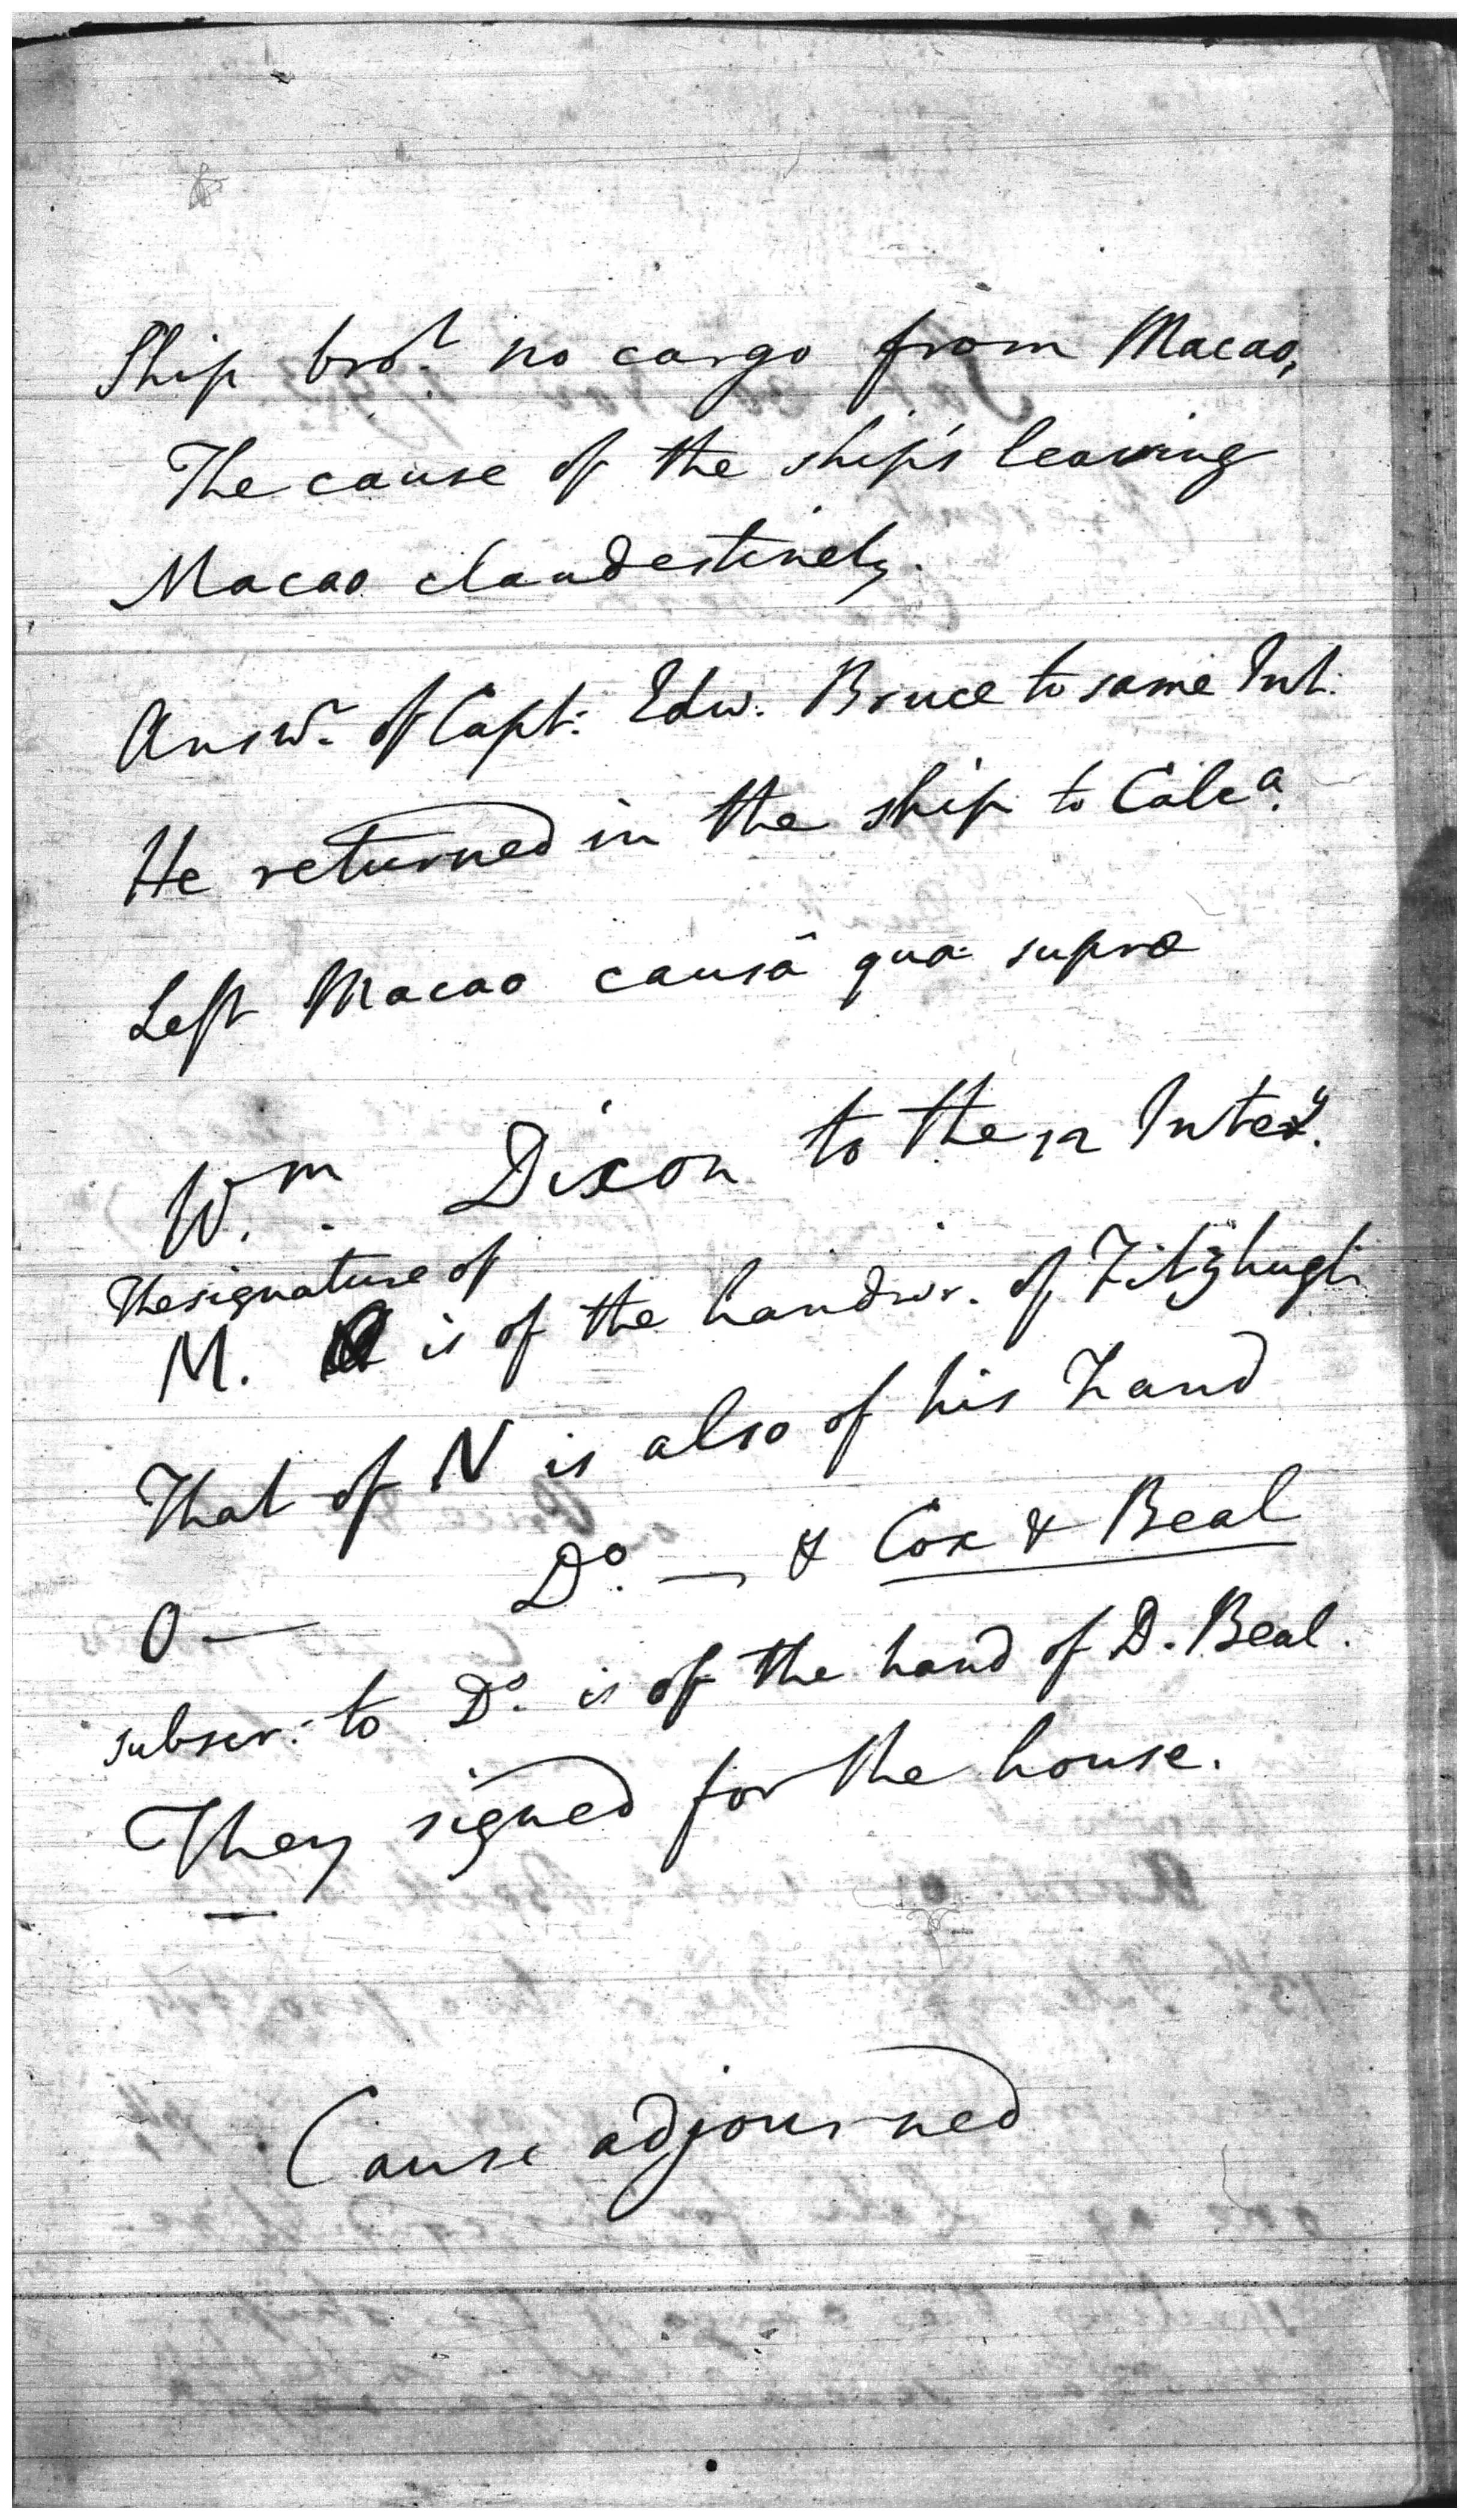 Ship bro.t no cargo from Macao,
The cause of the ship's leaving
Macao clandestinely.
Answ.r of Capt: Edw. Bruce to same Int.
He returned in the ship to Calc.a
Left Macao causâ qua supra
W.m Dixon to the 12 Inter.y
The signature of
M. is of the handwr. of Fitzhugh
That of N is also of his hand
O — D.o — & Cox & Beal
subscr: to D.o is of the hand of D. Beal.
They signed for the house.
Cause adjourned